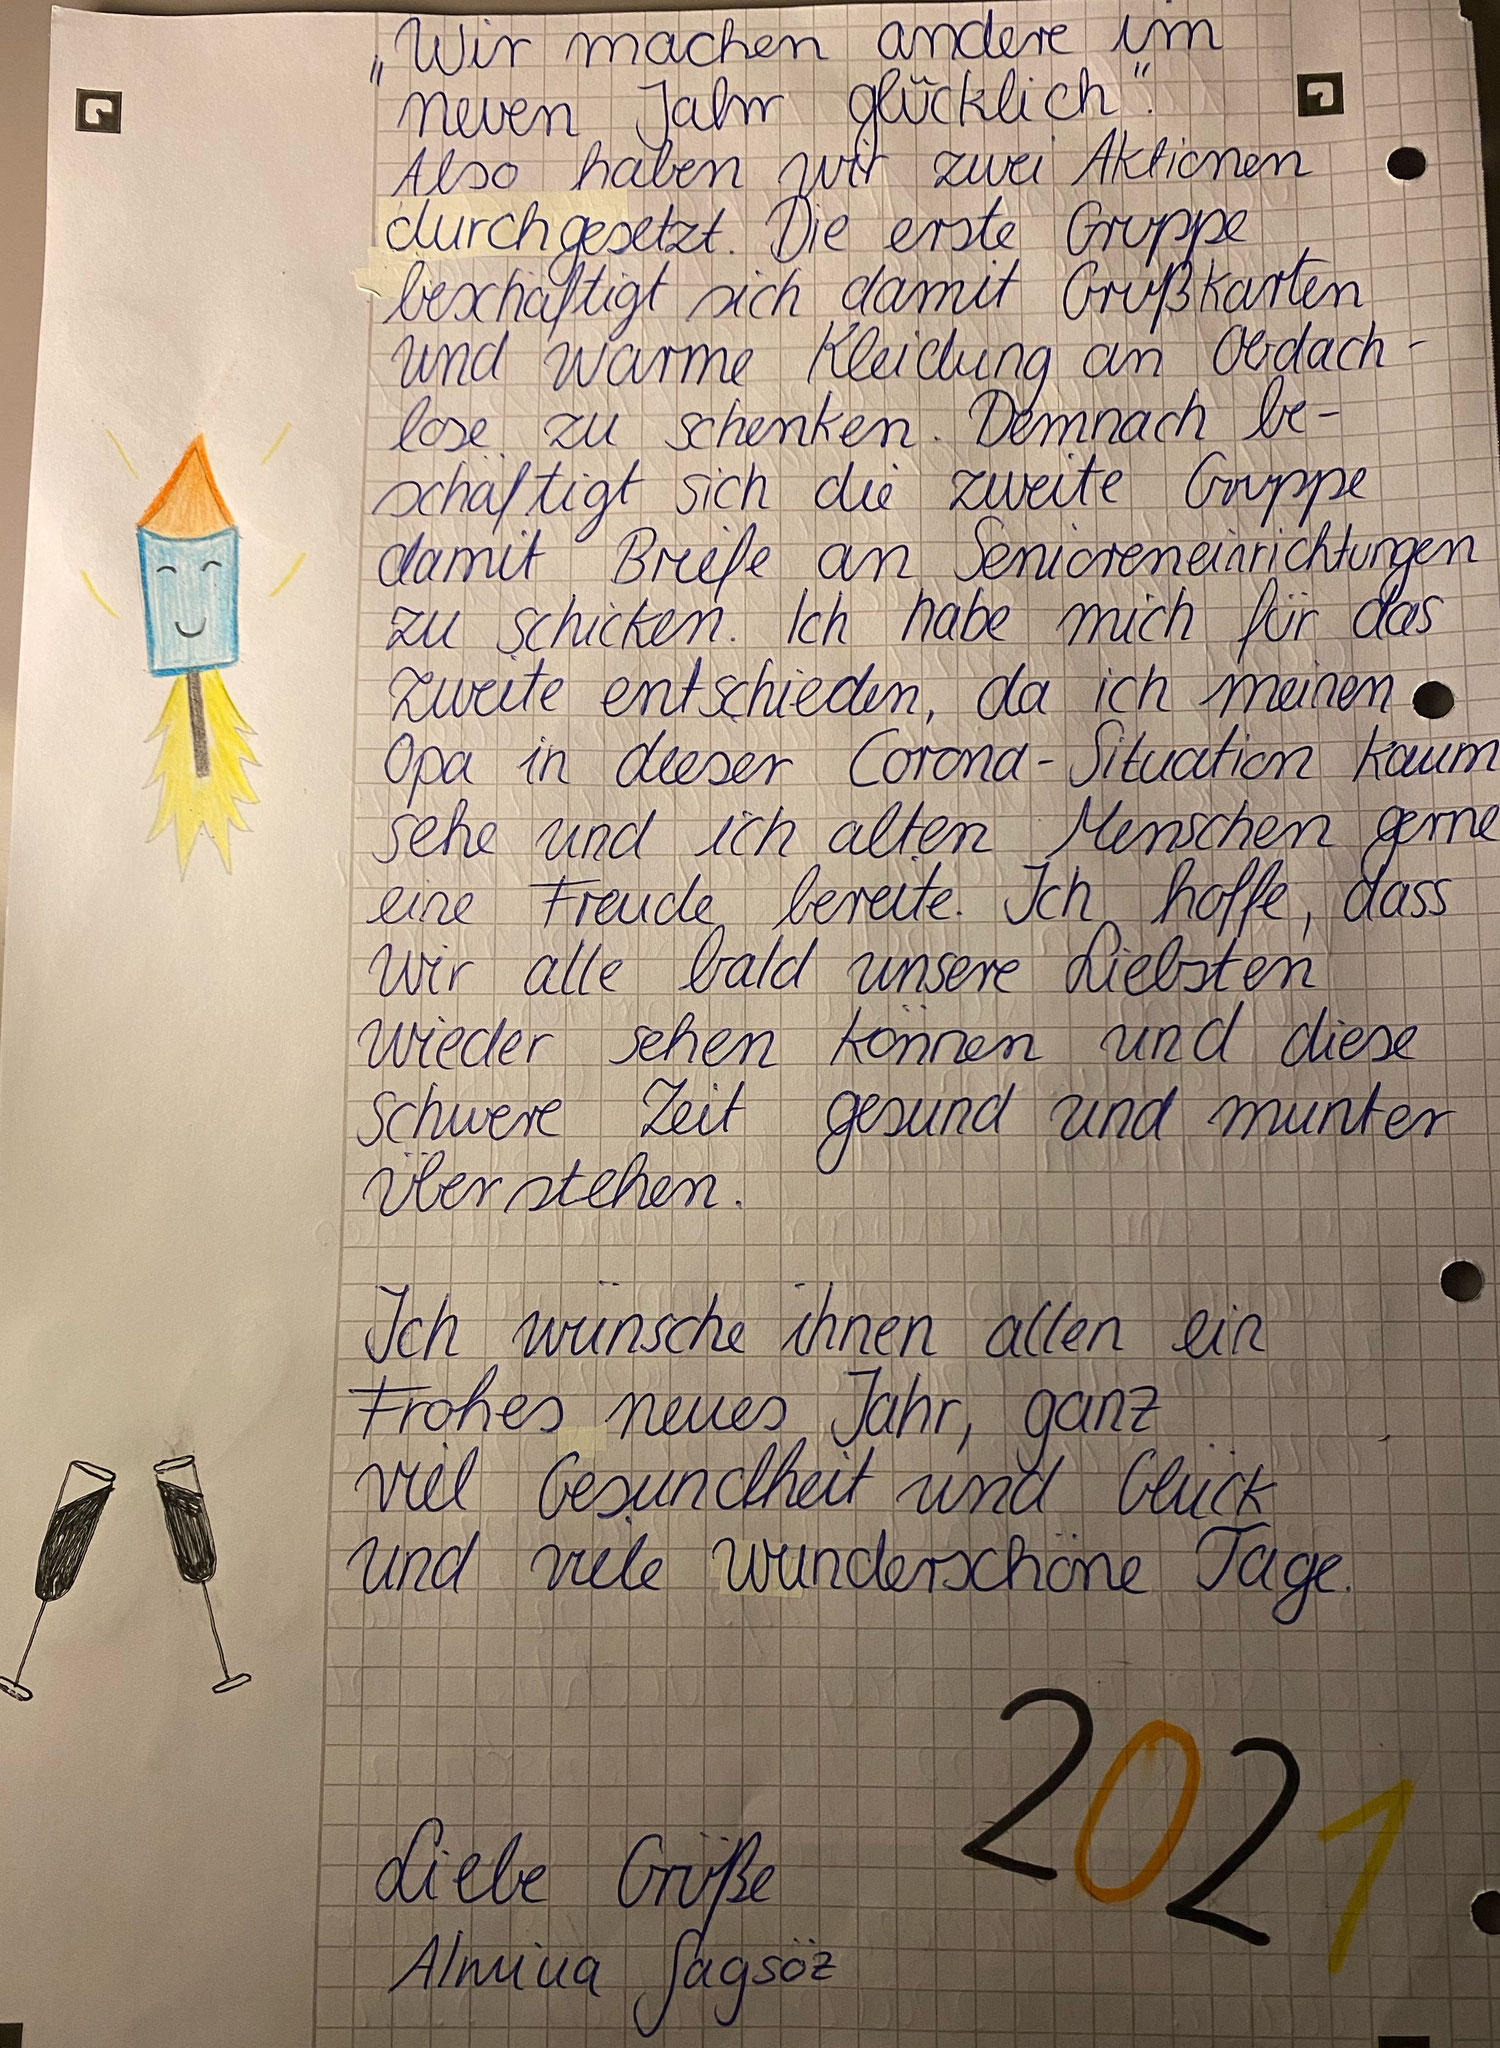 „Wir machen andere im
neuen Jahr glücklich".
Also haben wir zwei Aktionen
durchgesetzt. Die erste Gruppe
beschäftigt sich damit Grußkarten
und warme Kleidung an Obdach-
lose zu schenken. Demnach be-
schäftigt sich die zweite Gruppe
damit Briefe an Senioreneinrichtungen
zu schicken. Ich habe mich für das
zweite entschieden, da ich meinen
Opa in dieser Corona-Situation kaum
sehe und ich alten Menschen gerne
eine Freude bereite. Ich hoffe, dass
wir alle bald unsere Liebsten
wieder sehen können und diese
schwere Zeit gesund und munter
überstehen.
Ich wünsche ihnen allen ein
Frohes neues Jahr, ganz
viel Gesundheit und Glück
und viele wunderschöne Tage.
2021
Liebe Grüße
Almina Sagsöz